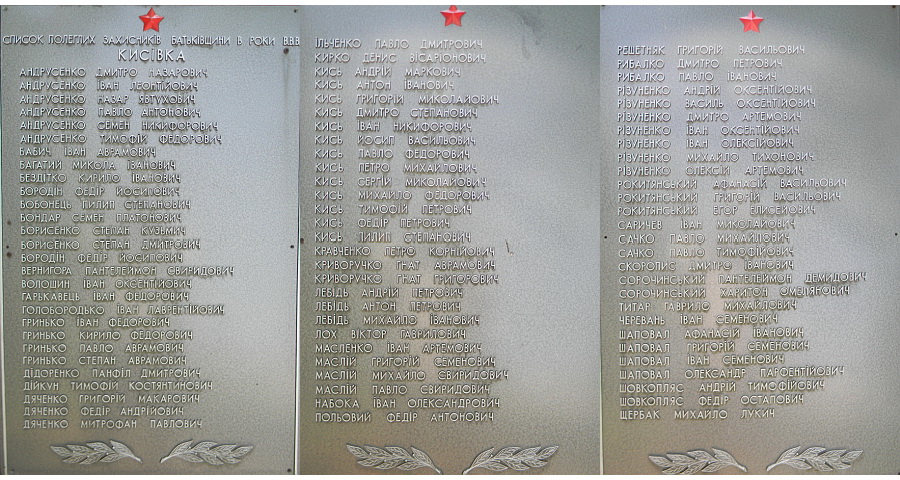 СПИСОК ПОЛЕГЛИХ ЗАХИСНИКІВ БАТЬКІВЩИНИ В РОКИ В.В.В.
КИСІВКА
АНДРУСЕНКО ДМИТРО НАЗАРОВИЧ
АНДРУСЕНКО ІВАН ЛЕОНТІЙОВИЧ
АНДРУСЕНКО НАЗАР ЯВТУХОВИЧ
АНДРУСЕНКО ПАВЛО АНТОНОВИЧ
АНДРУСЕНКО СЕМЕН НИКИФОРОВИЧ
АНДРУСЕНКО ТИМОФІЙ ФЕДОРОВИЧ
БАБИЧ ІВАН АВРАМОВИЧ
БАГАТИЙ МИКОЛА ІВАНОВИЧ
БЕЗДІТКО КИРИЛО ІВАНОВИЧ
БОРОДІН ФЕДІР ЙОСИПОВИЧ
БОБОНЕЦЬ ПИЛИП СТЕПАНОВИЧ
БОНДАР СЕМЕН ПЛАТОНОВИЧ
БОРИСЕНКО СТЕПАН КУЗЬМИЧ
БОРИСЕНКО СТЕПАН ДМИТРОВИЧ
БОРОДІН ФЕДІР ЙОСИПОВИЧ
ВЕРНИГОРА ПАНТЕЛЕЙМОН СВИРИДОВИЧ
ВОЛОШИН ІВАН ОКСЕНТІЙОВИЧ
ГАРЬКАВЕЦЬ ІВАН ФЕДОРОВИЧ
ГОЛОБОРОДЬКО ІВАН ЛАВРЕНТІЙОВИЧ
ГРИНЬКО ІВАН ФЕДОРОВИЧ
ГРИНЬКО КИРИЛО ФЕДОРОВИЧ
ГРИНЬКО ПАВЛО АВРАМОВИЧ
ГРИНЬКО СТЕПАН АВРАМОВИЧ
ДІДОРЕНКО ПАНФІЛ ДМИТРОВИЧ
ДІЙКУН ТИМОФІЙ КОСТЯНТИНОВИЧ
ДЯЧЕНКО ГРИГОРІЙ МАКАРОВИЧ
ДЯЧЕНКО ФЕДІР АНДРІЙОВИЧ
ДЯЧЕНКО МИТРОФАН ПАВЛОВИЧ
ІЛЬЧЕНКО ПАВЛО ДМИТРОВИЧ
КИРКО ДЕНИС ВІСАРІОНОВИЧ
КИСЬ АНДРІЙ МАРКОВИЧ
КИСЬ АНТОН ІВАНОВИЧ
КИСЬ ГРИГОРІЙ МИКОЛАЙОВИЧ
КИСЬ ДМИТРО СТЕПАНОВИЧ
КИСЬ ІВАН НИКИФОРОВИЧ
КИСЬ ЙОСИП ВАСИЛЬОВИЧ
КИСЬ ПАВЛО ФЕДОРОВИЧ
КИСЬ ПЕТРО МИХАЙЛОВИЧ
КИСЬ СЕРГІЙ МИКОЛАЙОВИЧ
КИСЬ МИХАЙЛО ФЕДОРОВИЧ
КИСЬ ТИМОФІЙ ПЕТРОВИЧ
КИСЬ ФЕДІР ПЕТРОВИЧ
КИСЬ ПИЛИП СТЕПАНОВИЧ
КРАВЧЕНКО ПЕТРО КОРНІЙОВИЧ
КРИВОРУЧКО ГНАТ АВРАМОВИЧ
КРИВОРУЧКО ГНАТ ГРИГОРОВИЧ
ЛЕБІДЬ АНДРІЙ ПЕТРОВИЧ
ЛЕБІДЬ АНТОН ПЕТРОВИЧ
ЛЕБІДЬ МИХАЙЛО ІВАНОВИЧ
ЛОХ ВІКТОР ГАВРИЛОВИЧ
МАСЛЕНКО ІВАН АРТЕМОВИЧ
МАСЛІЙ ГРИГОРІЙ СЕМЕНОВИЧ
МАСЛІЙ МИХАЙЛО СВИРИДОВИЧ
МАСЛІЙ ПАВЛО СВИРИДОВИЧ
НАБОКА ІВАН ОЛЕКСАНДРОВИЧ
ПОЛЬОВИЙ ФЕДІР АНТОНОВИЧ
РЕШЕТНЯК ГРИГОРІЙ ВАСИЛЬОВИЧ
РИБАЛКО ДМИТРО ПЕТРОВИЧ
РИБАЛКО ПАВЛО ІВАНОВИЧ
РІЗУНЕНКО АНДРІЙ ОКСЕНТІЙОВИЧ
РІЗУНЕНКО ВАСИЛЬ ОКСЕНТІЙОВИЧ
РІЗУНЕНКО ДМИТРО АРТЕМОВИЧ
РІЗУНЕНКО ІВАН ОКСЕНТІЙОВИЧ
РІЗУНЕНКО ІВАН ОЛЕКСІЙОВИЧ
РІЗУНЕНКО МИХАЙЛО ТИХОНОВИЧ
РІЗУНЕНКО ОЛЕКСІЙ АРТЕМОВИЧ
РОКИТЯНСЬКИЙ АФАНАСІЙ ВАСИЛЬОВИЧ
РОКИТЯНСЬКИЙ ГРИГОРІЙ ВАСИЛЬОВИЧ
РОКИТЯНСЬКИЙ ЕГОР ЕЛИСЕЙОВИЧ
САРИЧЕВ ІВАН МИКОЛАЙОВИЧ
САЧКО ПАВЛО МИХАЙЛОВИЧ
САЧКО ПАВЛО ТИМОФІЙОВИЧ
СКОРОПИС ДМИТРО ІВАНОВИЧ
СОРОЧИНСЬКИЙ ПАНТЕЛЕЙМОН ДЕМИДОВИЧ
СОРОЧИНСЬКИЙ ХАРИТОН ОМЕЛЯНОВИЧ
ТИТАР ГАВРИЛО МИХАЙЛОВИЧ
ЧЕРЕВАНЬ ІВАН СЕМЕНОВИЧ
ШАПОВАЛ АФАНАСІЙ ІВАНОВИЧ
ШАПОВАЛ ГРИГОРІЙ СЕМЕНОВИЧ
ШАПОВАЛ ІВАН СЕМЕНОВИЧ
ШАПОВАЛ ОЛЕКСАНДР ПАРФЕНТІЙОВИЧ
ШОВКОПЛЯС АНДРІЙ ТИМОФІЙОВИЧ
ШОВКОПЛЯС ФЕДІР ОСТАПОВИЧ
ЩЕРБАК МИХАЙЛО ЛУКИЧ